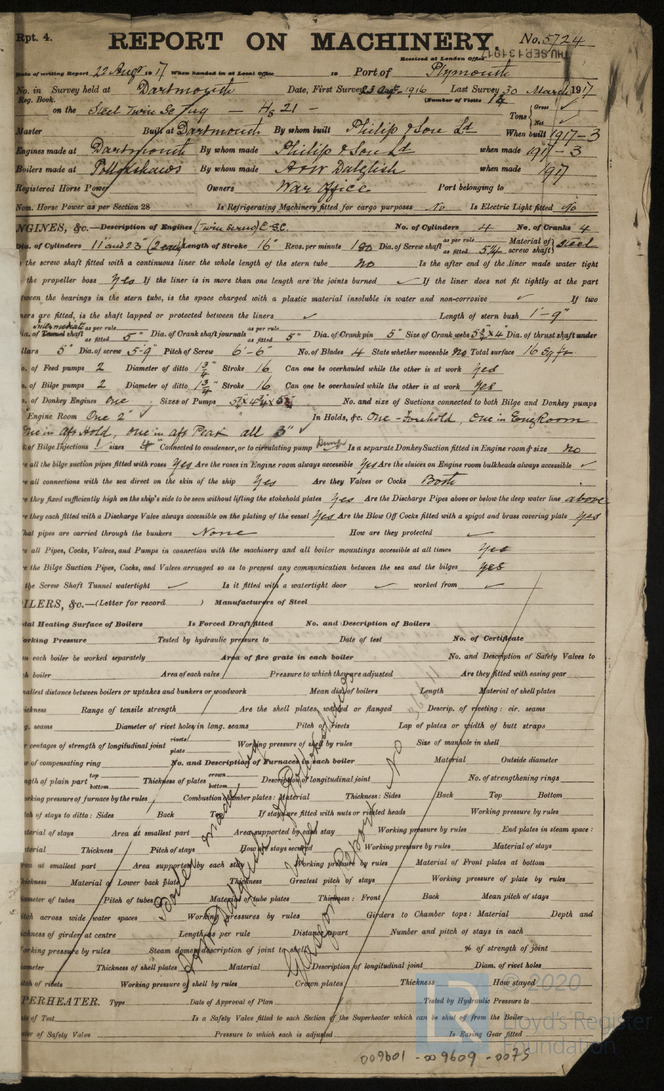 Rpt. 4. REPORT ON MACHINERY. No. 5724
Received at London Office THU. SEP. 13. 1917
Date of writing Report 22 Aug 1917 When handed in at Local Office 10 Port of Plymouth
No. in Survey held at Dartmouth Date, First Survey 1916 Last Survey 30 March 1917
Reg. Book. (Number of Visits 14
on the Steel Twin Sc Tug — HS 21 — Tons Gross Net
Master Built at Dartmouth By whom built Philip & Son Ld When built 1917-3
Engines made at Dartmouth By whom made Philip & Son Ld when made 1917-3
Boilers made at Pollokshaws By whom made A & W Dalglish when made 1917
Registered Horse Power Owners War Office Port belonging to
Nom. Horse Power as per Section 28 Is Refrigerating Machinery fitted for cargo purposes No Is Electric Light fitted No
NGINES, &c.—Description of Engines (Twin Screw) C.S.C. No. of Cylinders 4 No. of Cranks 4
Dia. of Cylinders 11 and 23" (2 each) Length of Stroke 16" Revs. per minute 180 Dia. of Screw shaft as per rule as fitted 5¼ Material of screw shaft) steel
the screw shaft fitted with a continuous liner the whole length of the stern tube no Is the after end of the liner made water tight
the propeller boss yes If the liner is in more than one length are the joints burned ✓ If the liner does not fit tightly at the part
ween the bearings in the stern tube, is the space charged with a plastic material insoluble in water and non-corrosive ✓ If two
ners are fitted, is the shaft lapped or protected between the liners ✓ Length of stern bush 1'-9"
intermediate
Dia. of Tunnel shaft as per rule as fitted 5" Dia. of Crank shaft journals as per rule as fitted 5" Dia. of Crank pin 5" Size of Crank webs Dia. of thrust shaft under
llars 5" Dia. of screw 5-9" Pitch of Screw 6'-6" No. of Blades 4 State whether moveable no Total surface 16 sq ft
. of Feed pumps 2 Diameter of ditto 1¾" Stroke 16 Can one be overhauled while the other is at work yes
. of Bilge pumps 2 Diameter of ditto 1¾" Stroke 16 Can one be overhauled while the other is at work yes
. of Donkey Engines One Sizes of Pumps No. and size of Suctions connected to both Bilge and Donkey pumps
Engine Room One 2" ✓ In Holds, &c. One - Forehold, One in Eng Room
One in Aft Hold, one in Aft Peak all 3" ✓
. of Bilge Injections 1 sizes Connected to condenser, or to circulating pump Pump Is a separate Donkey Suction fitted in Engine room & size no
re all the bilge suction pipes fitted with roses yes Are the roses in Engine room always accessible yes Are the sluices on Engine room bulkheads always accessible ✓
re all connections with the sea direct on the skin of the ship yes Are they Valves or Cocks Both
re they fixed sufficiently high on the ship's side to be seen without lifting the stokehold plates yes Are the Discharge Pipes above or below the deep water line above
re they each fitted with a Discharge Valve always accessible on the plating of the vessel yes Are the Blow Off Cocks fitted with a spigot and brass covering plate yes
hat pipes are carried through the bunkers None How are they protected ✓
re all Pipes, Cocks, Valves, and Pumps in connection with the machinery and all boiler mountings accessible at all times yes
re the Bilge Suction Pipes, Cocks, and Valves arranged so as to prevent any communication between the sea and the bilges yes
the Screw Shaft Tunnel watertight ✓ Is it fitted with a watertight door ✓ worked from ✓
ILERS, &c.—(Letter for record ) Manufacturers of Steel
tal Heating Surface of Boilers Is Forced Draft fitted No. and Description of Boilers
orking Pressure Tested by hydraulic pressure to Date of test No. of Certificate
n each boiler be worked separately Area of fire grate in each boiler No. and Description of Safety Valves to
h boiler Area of each valve Pressure to which they are adjusted Are they fitted with easing gear
mallest distance between boilers or uptakes and bunkers or woodwork Mean dia. of boilers Length Material of shell plates
hickness Range of tensile strength Are the shell plates welded or flanged Descrip. of riveting: cir. seams
g. seams Diameter of rivet holes in long. seams Pitch of rivets Lap of plates or width of butt straps
r centages of strength of longitudinal joint rivets plate Working pressure of shell by rules Size of manhole in shell
e of compensating ring No. and Description of Furnaces in each boiler Material Outside diameter
ngth of plain part top bottom Thickness of plates crown bottom Description of longitudinal joint No. of strengthening rings
orking pressure of furnace by the rules Combustion chamber plates: Material Thickness: Sides Back Top Bottom
tch of stays to ditto: Sides Back Top If stays are fitted with nuts or riveted heads Working pressure by rules
terial of stays Area at smallest part Area supported by each stay Working pressure by rules End plates in steam space:
terial Thickness Pitch of stays How are stays secured Working pressure by rules Material of stays
rea at smallest part Area supported by each stay Working pressure by rules Material of Front plates at bottom
hickness Material of Lower back plate Thickness Greatest pitch of stays Working pressure of plate by rules
iameter of tubes Pitch of tubes Material of tube plates Thickness: Front Back Mean pitch of stays
itch across wide water spaces Working pressures by rules Girders to Chamber tops: Material Depth and
ickness of girder at centre Length as per rule Distance apart Number and pitch of stays in each
orking pressure by rules Steam dome: description of joint to shell % of strength of joint
ameter Thickness of shell plates Material Description of longitudinal joint Diam. of rivet holes
itch of rivets Working pressure of shell by rules Crown plates Thickness How stayed
PERHEATER. Type Date of Approval of Plan Tested by Hydraulic Pressure to
te of Test Is a Safety Valve fitted to each Section of the Superheater which can be shut off from the Boiler
eter of Safety Valve Pressure to which each is adjusted Is Easing Gear fitted
Boiler made by
A & W Dalglish at Pollokshaws
Glasgow Report No
009601-009609-0075
© 2020
Lloyd's Register
Foundation